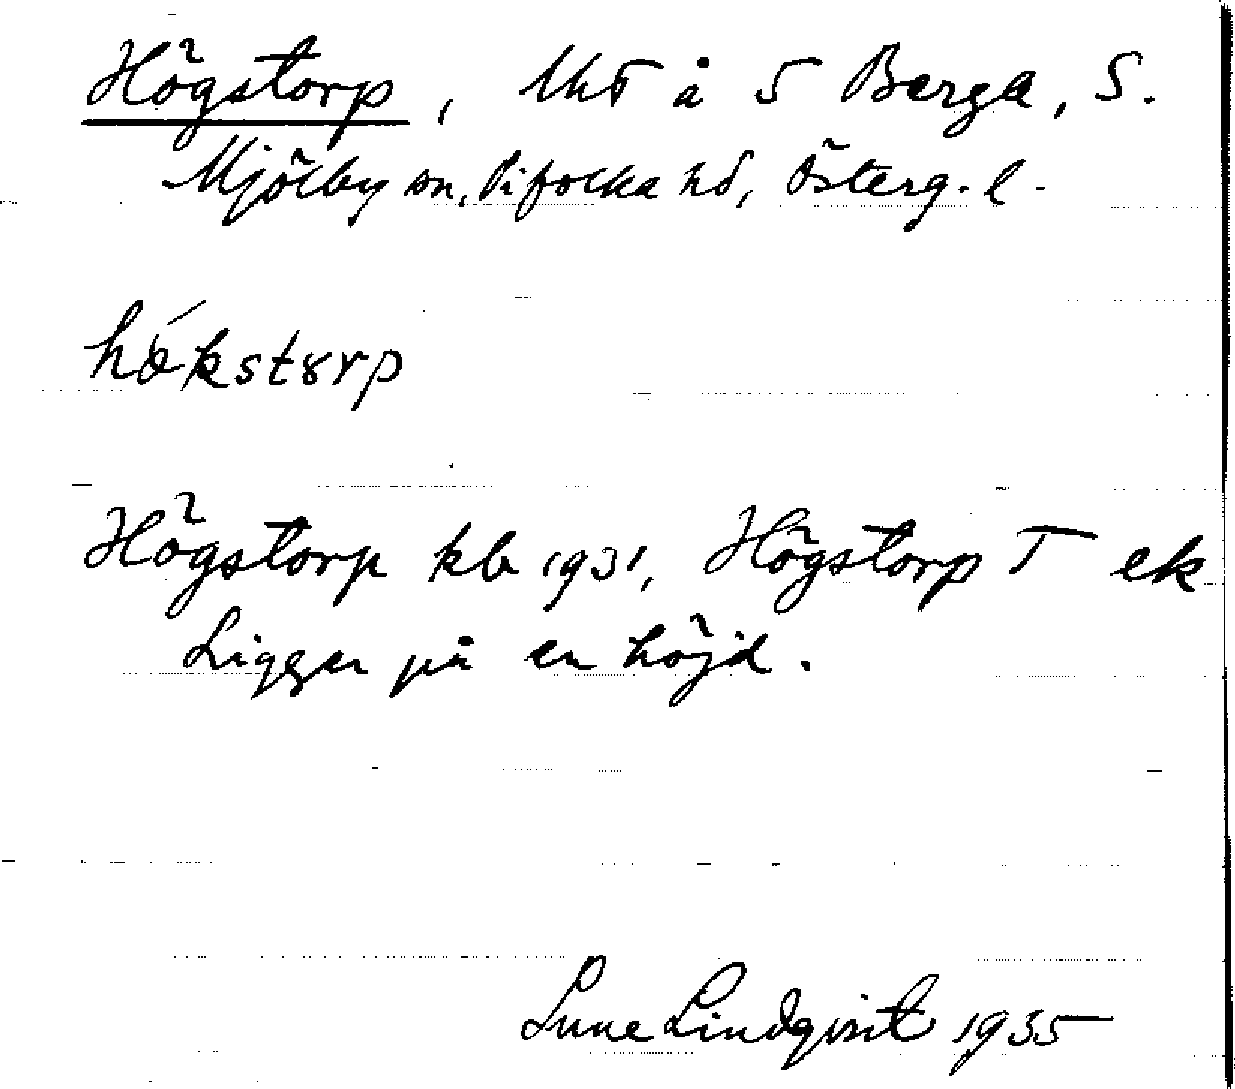 Högstorp, lht å S Berga, S.
Mjölby sn, Vifolka hd, Österg. l.
hǿkstɤrp
Högstorp kb 1931, Högstorp T ek
Ligger på en höjd.
Sune Lindqvist 1935